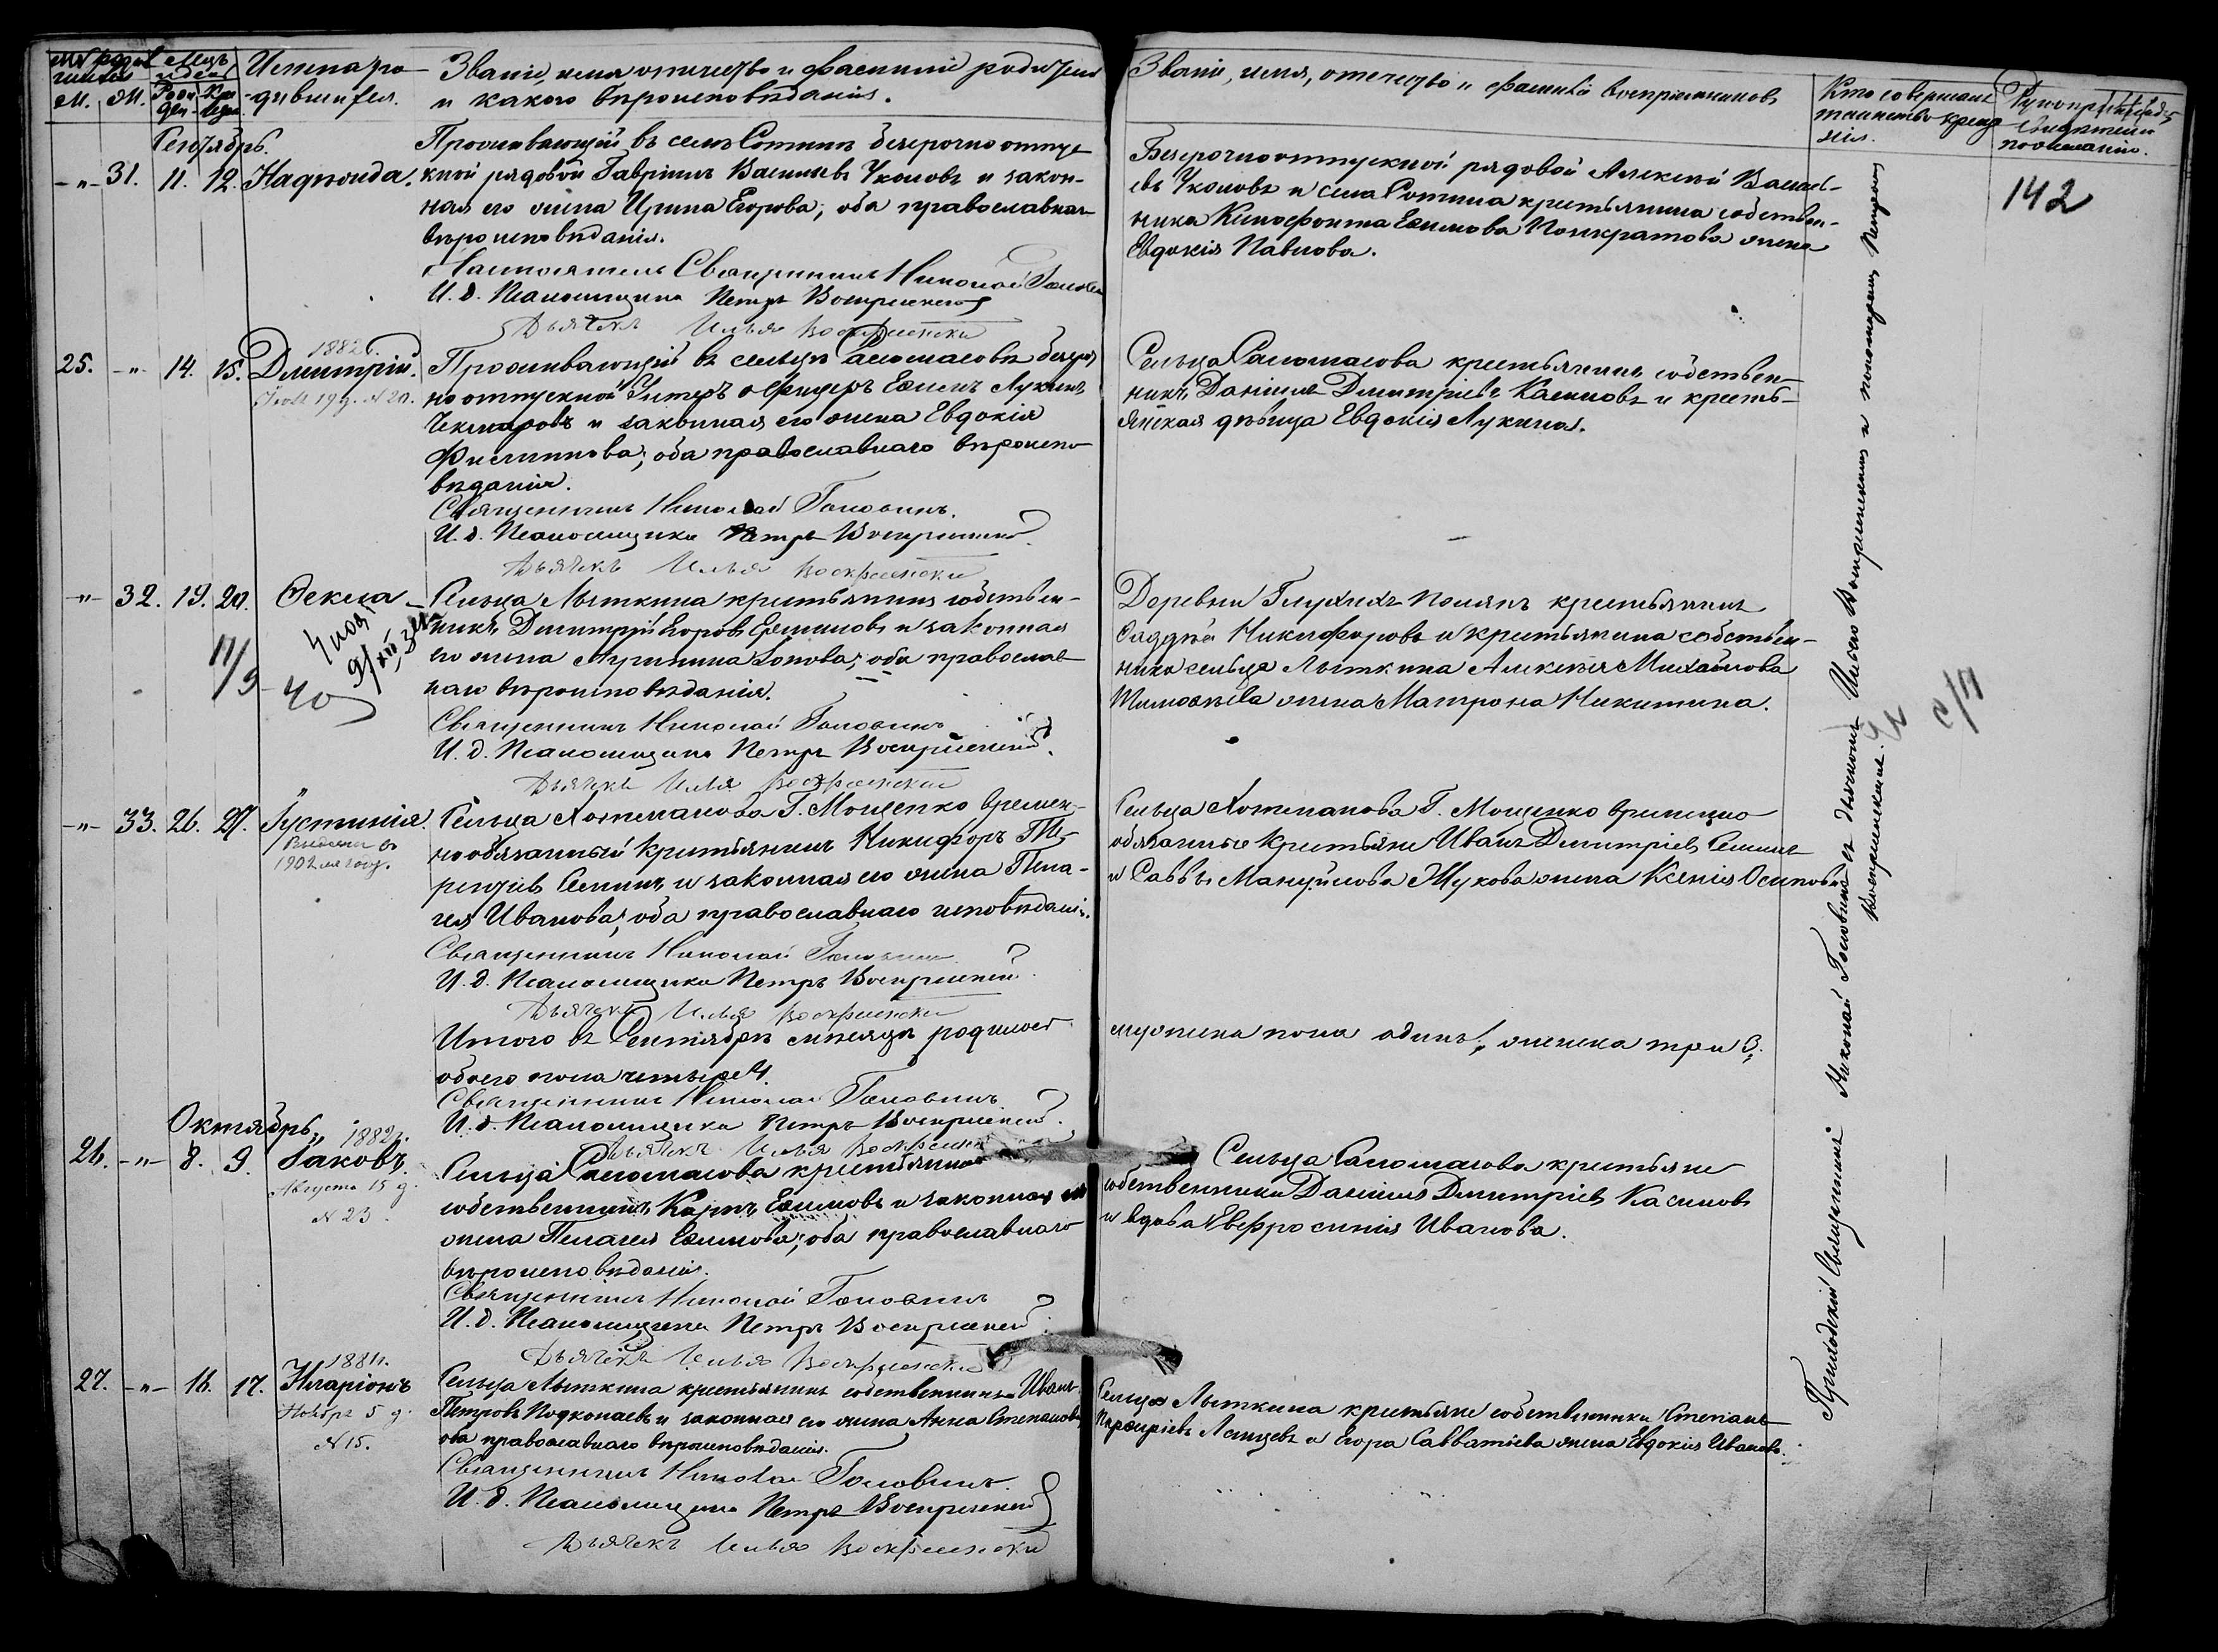 Счетъ родив-
шихся Мѣсяцъ и день Имена ро-
М. Ж. Рожден. Крещен. дившихся.
Званіе, имя, отчество и фамилія родителей
и какого вѣроисповѣданія.
Званіе, имя, отечество и фамилія воспріемниковъ
Кто совершалъ
таинство креще-
нія.
Рукоприкладство
свидѣтелей
по желанію.
142
Сентябрь.
-"- 31. 11. 12. Надѣжда.
Проживающій въ селѣ Сотни безсрочноотпус-
кной рядовой Гавріилъ Васильевъ Уколовъ и закон-
ная его жена Ирина Егорова; оба православнаго
вѣроисповѣданія.
Священникъ Николай Головинъ
И. д. Псаломщика Петръ Воскресенскій
Дьячекъ Илья Воскресенскій
Безсрочноотпускной рядовой Алексѣй Василь-
евъ Уколовъ и села крестьянина собствен-
ника Ксенофонта Ефимова Понкратова жена
Евдокія Павлова.
25. -"- 14. 15. Дмитрій.
1882 г.
Іюля 19 д. N 20.
Проживающій въ сельцѣ Саломасовѣ безсроч-
но отпускной Унтеръ офицеръ Ефимъ Лукинъ
Чекмаровъ и законная его жена Евдокія
Филиппова; оба православнаго вѣроиспо-
вѣданія.
Священникъ Николай Головинъ.
И. д. Псаломщика Петръ Воскресенскій
Дьячекъ Илья Воскресенскій
Сельца Саломасова крестьянинъ собствен-
никъ Даніилъ Дмитріевъ Касимовъ и кресть-
янская дѣвица Евдокія Лукина.
-"- 32. 19. 20. Ѳекла
11/9 40
Сельца Лыткина крестьянинъ собствен-
никъ Дмитрій Ефимовъ и законная
его жена оба православ-
наго вѣроисповѣданія.
Священникъ Николай Головинъ
И. д. Псаломщика Петръ Воскресенскій.
Дьячекъ Илья Воскресенскій
Деревни Глухихъ Полянъ крестьянинъ
Ѳаддей Никифоровъ и крестьянина собствен-
ника сельца Лыткина Алексѣя Михайлова
Тимоѳѣева жена Матрона Никитина.
с/п
-"- 33. 26. 27. Іустинія.
Выдана въ
1902 мъ году.
Сельца Хотманова Г. Мощенко времен-
нообязанный крестьянинъ Никифоръ Те-
рентіевъ Селинъ и законная его жена Пела-
гея Иванова; оба православнаго исповѣданія.
Священникъ Николай Головинъ
И. д. Псаломщика Петръ Воскресенскій
Дьячекъ Илья Воскресенскій
Сельца Хотманова Г. Мощенко временно
обязанные крестьяне Иванъ Дмитріевъ Селинъ
и Саввы Мануйлова Жукова жена Ксенія Осипова
Итого въ Сентябрѣ мѣсяцѣ родилось
обоего пола четыре 4.
мужеска пола одинъ 1, женска три 3.
Священникъ Николай Головинъ
И. д. Псаломщика Петръ Воскресенскій.
Дьячекъ Илья Воскресенскій
Октябрь.
26. -"- 8. 9. Іаковъ.
1882 г.
Августа 15 д.
N 23.
Сельца Саломасова крестьянинъ
собственникъ Карпъ Ефимовъ и законная его
жена Пелагея Ефимова; оба православнаго
вѣроисповѣданія.
Священникъ Николай Головинъ
И. д. Псаломщика Петръ Воскресенскій
Дьячекъ Илья Воскресенскій
Сельца Саломасова крестьяне
собственники Даніилъ Дмитріевъ Касимовъ
и вдова Евфросинія Иванова.
27. -"- 16. 17. Иларіонъ
1881 г.
Ноября 5 д.
N 15.
Сельца Лыткина крестьянинъ собственникъ Иванъ
Петровъ Подкопаевъ и законная его жена Анна Степанова
оба православнаго вѣроисповѣданія.
Священникъ Николай Головинъ.
И. д. Псаломщика Петръ Воскресенскій
Дьячекъ Илья Воскресенскій
Сельца Лыткина крестьяне собственники Степанъ
и Егора Савватіева жена Евдокія Иванова.
Приходскій Священникъ Николай Головинъ съ дьячкомъ Ильею Воскресенскимъ и пономаремъ Петромъ
Воскресенскимъ.